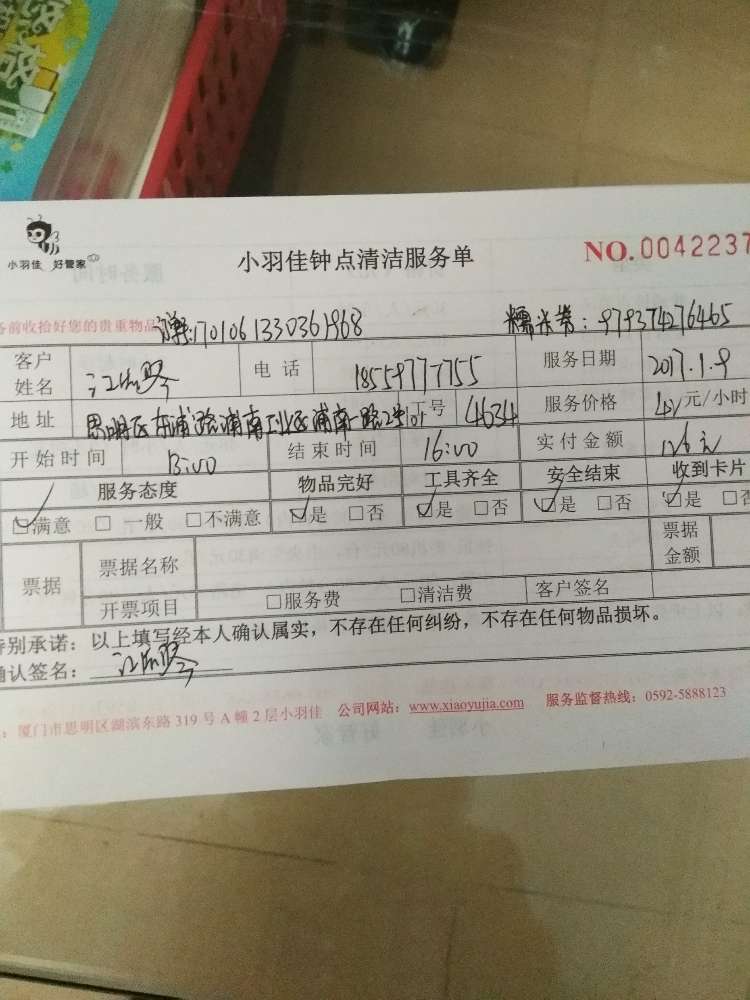 小羽佳 好管家
小羽佳钟点清洁服务单
NO.0042237
前收拾好您的贵重物品
订单:1701061330361968
糯米券:979374276465
客户姓名
电话 18559777755
服务日期 2017.1.9
地址 思明区东浦路浦南工业区浦南一路2号
工号 4634
服务价格 42元/小时
开始时间 13:00
结束时间 16:00
实付金额 126元
服务态度 物品完好 工具齐全 安全结束 收到卡片
☑满意 □一般 □不满意 ☑是 □否 ☑是 □否 ☑是 □否 ☑是 □否
票据 票据名称 票据金额
开票项目 □服务费 □清洁费 客户签名
特别承诺:以上填写经本人确认属实,不存在任何纠纷,不存在任何物品损坏。
确认签名:
:厦门市思明区湖滨东路319号A幢2层小羽佳 公司网站:www.xiaoyujia.com 服务监督热线:0592-5888123